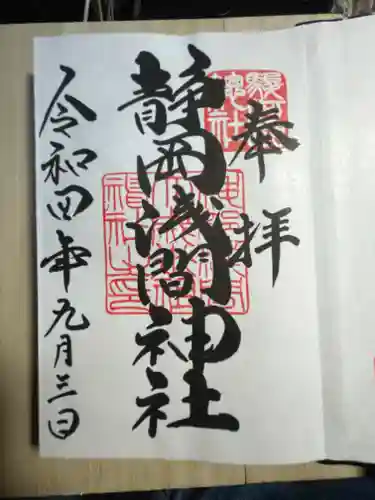 奉拝
静岡浅間神社
令和四年九月三日